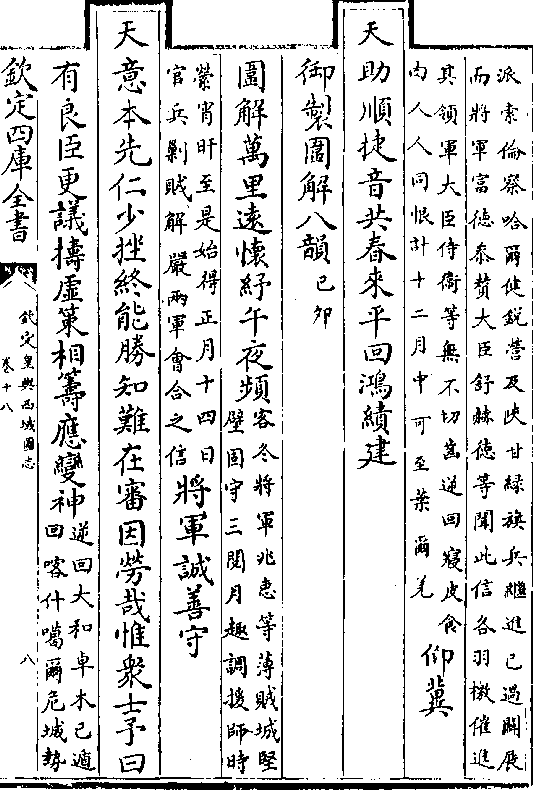 派索倫察哈爾健銳營及陝甘緑旗兵繼進已過闢展
而將軍富德叅贊大臣舒赫德等聞此信各羽檄催進
其領軍大臣侍衛等無不切齒逆回寢皮食
肉人人同恨計十二月中可至葉爾羌
仰冀
天助順捷音共春來平回鴻績建
御製圍解八韻己卯
圍解萬里逺懷紓午夜頻
客冬將軍兆惠等薄賊城堅
壁固守三閱月趣調援師時
縈宵旰至是始得正月十四日
官兵剿賊解嚴兩軍會合之信
將軍誠善守
天意本先仁少挫終能勝知難在審因勞哉惟衆士予曰
有良臣更議擣虛策相籌應變神
逆回大和卓木已遁
回喀什噶爾危城勢
欽定四庫全書
欽定皇輿西域圖志
卷十八
八